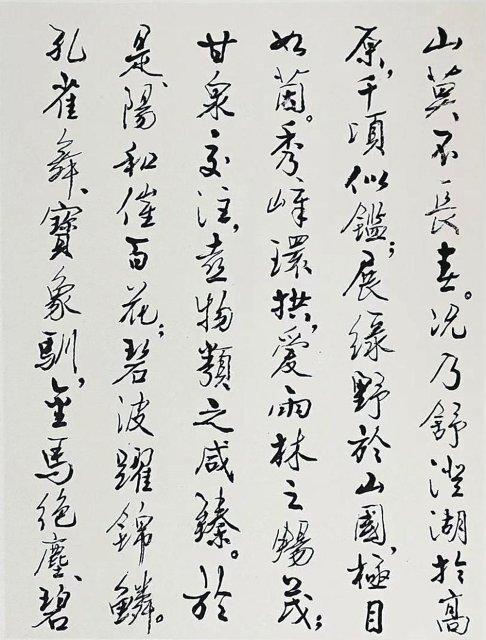 山莫不長春。況乃舒澄湖於高
原，千頃似鑑；展綠野於山國，極目
如茵。秀峰環拱，愛雨林之暢茂；
甘泉交注，喜物類之咸臻。於
是陽和催百花；碧波躍錦鱗。
孔雀舞、寶象馴，金馬絕塵、碧